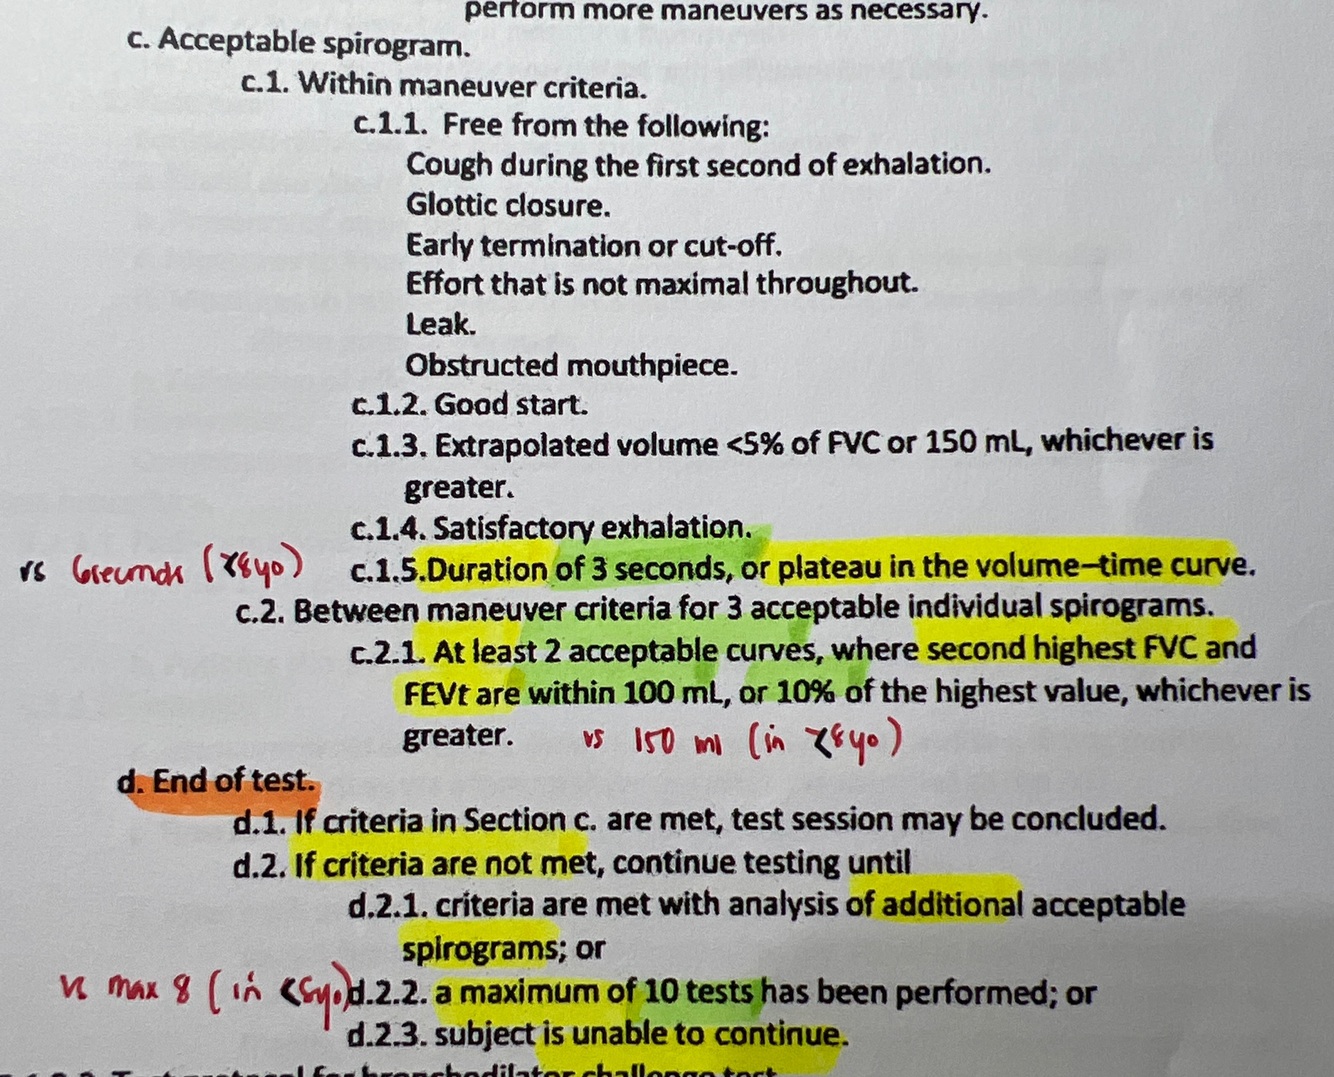 perform more maneuvers as necessary.
c. Acceptable spirogram.
c.1. Within maneuver criteria.
c.1.1. Free from the following:
Cough during the first second of exhalation.
Glottic closure.
Early termination or cut-off.
Effort that is not maximal throughout.
Leak.
Obstructed mouthpiece.
c.1.2. Good start.
c.1.3. Extrapolated volume <5% of FVC or 150 mL, whichever is
greater.
c.1.4. Satisfactory exhalation.
vs 6seconds ( yo) c.1.5.Duration of 3 seconds, or plateau in the volume–time curve.
c.2. Between maneuver criteria for 3 acceptable individual spirograms.
c.2.1. At least 2 acceptable curves, where second highest FVC and
FEVt are within 100 mL, or 10% of the highest value, whichever is
greater. vs 150 ml (in yo)
d. End of test.
d.1. If criteria in Section c. are met, test session may be concluded.
d.2. If criteria are not met, continue testing until
d.2.1. criteria are met with analysis of additional acceptable
spirograms; or
vs max 8 (in yo) d.2.2. a maximum of 10 tests has been performed; or
d.2.3. subject is unable to continue.
challenge test